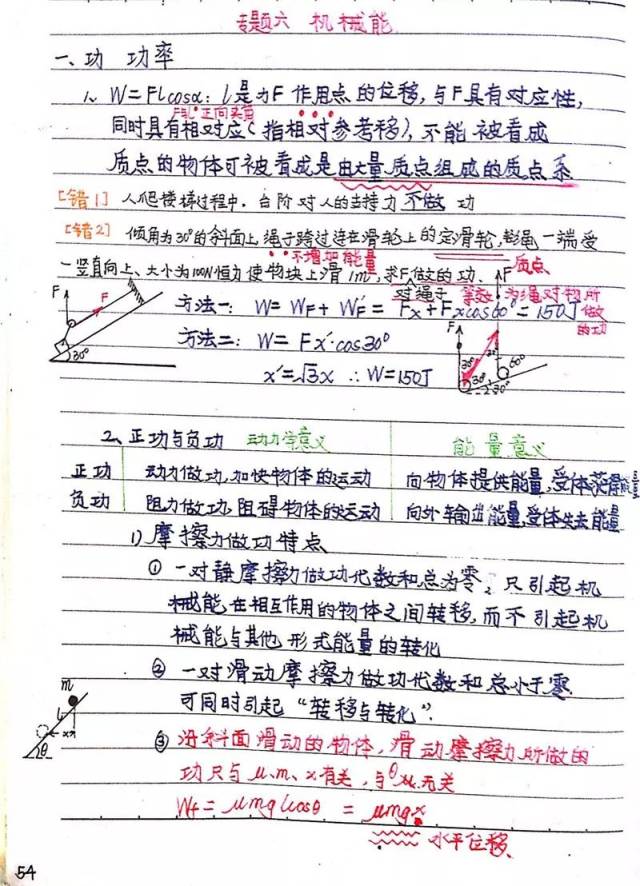 专题六 机械能
一、功 功率
1、W=Flcosα：l是力F作用点的位移，与F具有对应性，
F与l正向夹角
同时具有相对应(指相对参考移)，不能被看成
质点的物体可被看成是由大量质点组成的质点系
[错1] 人爬楼梯过程中，台阶对人的支持力不做功
不增加能量
[错2] 倾角为30°的斜面上，绳子跨过连在滑轮上的定滑轮，绳一端受
质点
一竖直向上、大小为100N恒力使物块上滑1m，求F做的功.
对绳子 等效：为绳对物所做的功
F F 30°
方法一：W=WF+WF′=Fx+Fxcos60°=150J
方法二：W=Fx′·cos30°
x′=√3x ∴W=150J
F F 30° 30° 60° 30°
2、正功与负功 动力学意义 能量意义
正功 动力做功，加快物体的运动 向物体提供能量，受体获得能量
负功 阻力做功，阻碍物体的运动 向外输出能量，受体失去能量
1) 摩擦力做功特点
① 一对静摩擦力做功代数和总为零，只引起机
械能在相互作用的物体之间转移，而不引起机
械能与其他形式能量的转化
② 一对滑动摩擦力做功代数和总小于零
可同时引起“转移与转化”.
m l x θ
③ 沿斜面滑动的物体，滑动摩擦力所做的
功只与μ、m、x有关，与θ无关
Wf=μmglcosθ=μmgx
水平位移
54